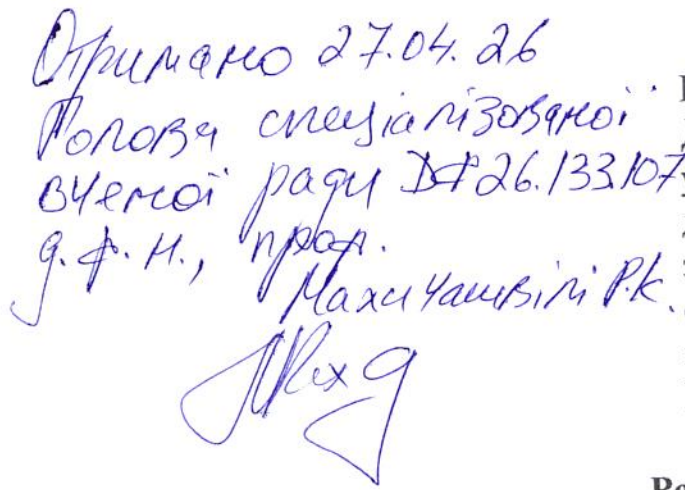 Отримано 27.04.26
Голова спеціалізованої
вченої ради ДФ 26.133.107
д.ф.н., проф.
Махачашвілі Р.К.